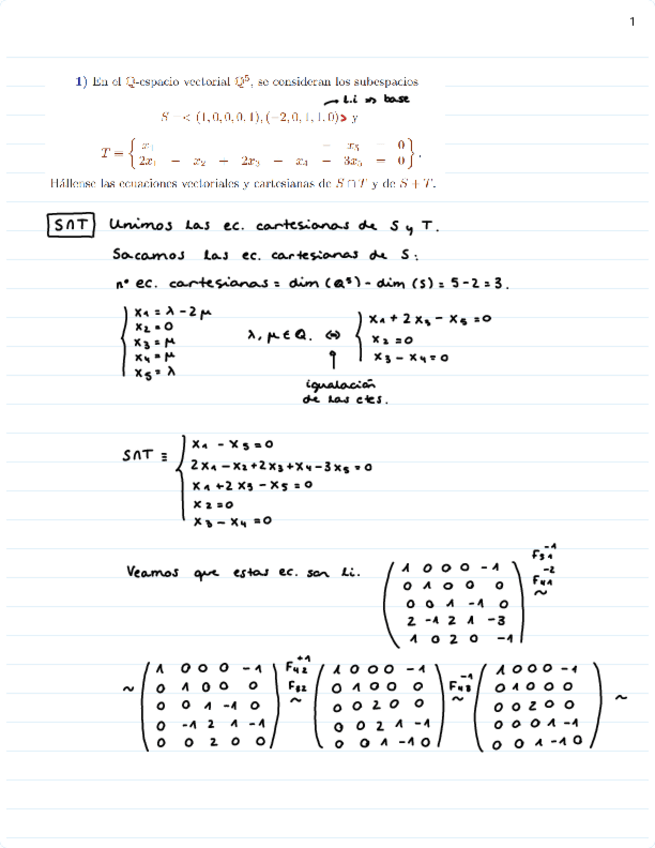 1
1) En el Q-espacio vectorial Q⁵, se consideran los subespacios
→ L.i ⇒ base
S = < (1, 0, 0, 0, 1), (−2, 0, 1, 1, 0)> y
T = { x₁ − x₅ = 0
2x₁ − x₂ + 2x₃ − x₄ − 3x₅ = 0 } .
Hállense las ecuaciones vectoriales y cartesianas de S ∩ T y de S + T.
S∩T Unimos las ec. cartesianas de S y T.
Sacamos las ec. cartesianas de S:
nº ec. cartesianas = dim (Q⁵) - dim (S) = 5-2 = 3.
x₁ = λ - 2μ
x₂ = 0
x₃ = μ
x₄ = μ
x₅ = λ
λ, μ ∈ Q. ⇔
x₁ + 2x₃ - x₅ = 0
x₂ = 0
x₃ - x₄ = 0
igualación
de las ctes.
S∩T ≡
x₁ - x₅ = 0
2x₁ - x₂ + 2x₃ + x₄ - 3x₅ = 0
x₁ + 2x₃ - x₅ = 0
x₂ = 0
x₃ - x₄ = 0
Veamos que estas ec. son Li.
1 0 0 0 -1
0 1 0 0 0
0 0 1 -1 0
2 -1 2 1 -3
1 0 2 0 -1
F₅₁⁻¹
F₄₁⁻²
~
~
1 0 0 0 -1
0 1 0 0 0
0 0 1 -1 0
0 -1 2 1 -1
0 0 2 0 0
F₄₂⁺¹
F₅₂
~
1 0 0 0 -1
0 1 0 0 0
0 0 2 0 0
0 0 2 1 -1
0 0 1 -1 0
F₄₃⁻¹
~
1 0 0 0 -1
0 1 0 0 0
0 0 2 0 0
0 0 0 1 -1
0 0 1 -1 0
~